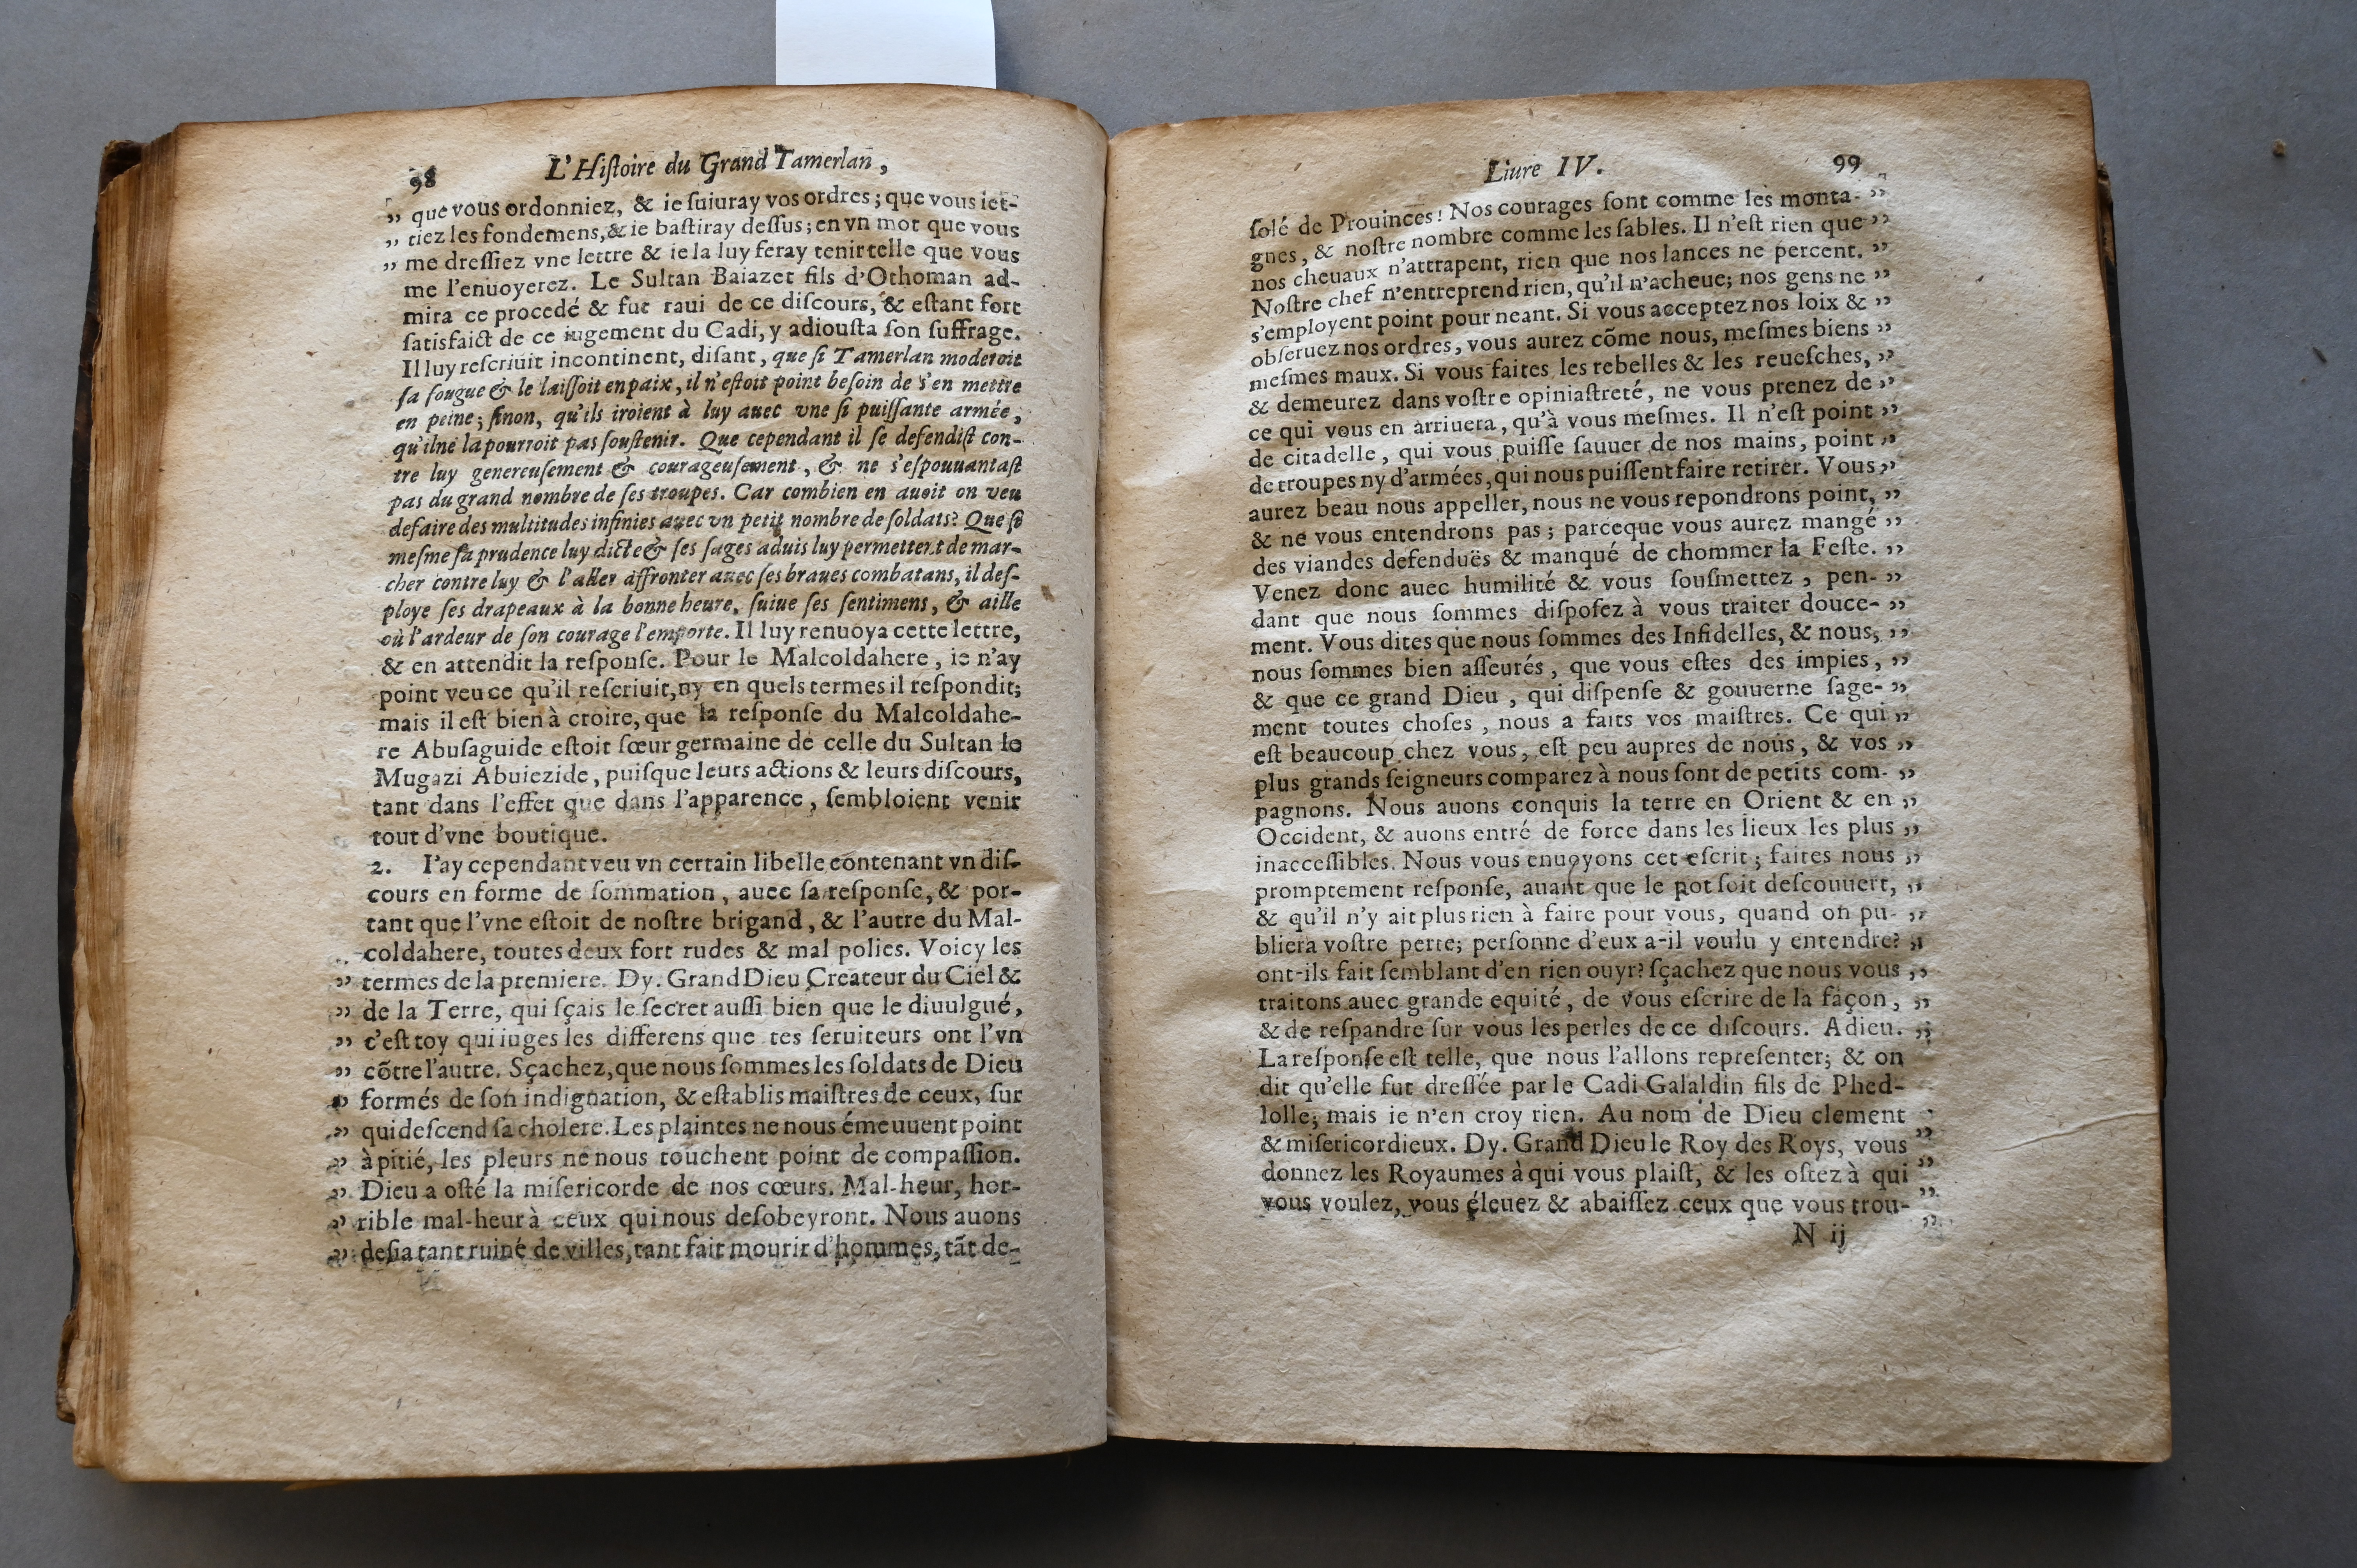 98 L'Hiſtoire du Grand Tamerlan,
„ que vous ordonniez, & ie ſuiuray vos ordres; que vous iet-
„ tiez les fondemens, & ie baſtiray deſſus; en vn mot que vous
„ me dreſſiez vne lettre & ie la luy feray tenir telle que vous
me l'enuoyerez. Le Sultan Baiazet fils d'Othoman ad-
mira ce procedé & fut raui de ce diſcours, & eſtant fort
ſatisfaict de ce iugement du Cadi, y adiouſta ſon ſuffrage.
Il luy reſcriuit incontinent, diſant, que ſi Tamerlan moderoit
ſa fougue & le laiſſoit en paix, il n'eſtoit point beſoin de s'en mettre
en peine; ſinon, qu'ils iroient à luy auec vne ſi puiſſante armée,
qu'il ne la pourroit pas ſouſtenir. Que cependant il ſe defendiſt con-
tre luy genereuſement & courageuſement, & ne s'eſpouuantaſt
pas du grand nombre de ſes troupes. Car combien en auoit on veu
defaire des multitudes infinies auec vn petit nombre de ſoldats? Que ſi
meſme ſa prudence luy dicte & ſes ſages aduis luy permettent de mar-
cher contre luy & l'aller affronter auec ſes braues combatans, il deſ-
ploye ſes drapeaux à la bonne heure, ſuiue ſes ſentimens, & aille
où l'ardeur de ſon courage l'emporte. Il luy renuoya cette lettre,
& en attendit la reſponſe. Pour le Malcoldahere, ie n'ay
point veu ce qu'il reſcriuit, ny en quels termes il reſpondit;
mais il eſt bien à croire, que la reſponſe du Malcoldahe-
re Abuſaguide eſtoit ſœur germaine de celle du Sultan le
Mugazi Abuiezide, puiſque leurs actions & leurs diſcours,
tant dans l'effet que dans l'apparence, ſembloient venir
tout d'vne boutique.
2. I'ay cependant veu vn certain libelle contenant vn diſ-
cours en forme de ſommation, auec ſa reſponſe, & por-
tant que l'vne eſtoit de noſtre brigand, & l'autre du Mal-
coldahere, toutes deux fort rudes & mal polies. Voicy les
„ termes de la premiere. Dy. Grand Dieu Createur du Ciel &
„ de la Terre, qui ſçais le ſecret auſſi bien que le diuulgué,
„ c'eſt toy qui iuges les differens que tes ſeruiteurs ont l'vn
„ cõtre l'autre. Sçachez, que nous ſommes les ſoldats de Dieu
„ formés de ſon indignation, & eſtablis maiſtres de ceux, ſur
„ qui deſcend ſa cholere. Les plaintes ne nous émeuuent point
„ à pitié, les pleurs ne nous touchent point de compaſſion.
„ Dieu a oſté la miſericorde de nos cœurs. Mal-heur, hor-
„ rible mal-heur à ceux qui nous deſobeyront. Nous auons
„ deſia tant ruiné de villes, tant fait mourir d'hommes, tãt de-
Liure IV. 99
ſolé de Prouinces! Nos courages ſont comme les monta- „
gnes, & noſtre nombre comme les ſables. Il n'eſt rien que „
nos cheuaux n'attrapent, rien que nos lances ne percent. „
Noſtre chef n'entreprend rien, qu'il n'acheue; nos gens ne „
s'employent point pour neant. Si vous acceptez nos loix & „
obſeruez nos ordres, vous aurez cõme nous, meſmes biens „
meſmes maux. Si vous faites les rebelles & les reueſches, „
& demeurez dans voſtre opiniaſtreté, ne vous prenez de „
ce qui vous en arriuera, qu'à vous meſmes. Il n'eſt point „
de citadelle, qui vous puiſſe ſauuer de nos mains, point „
de troupes ny d'armées, qui nous puiſſent faire retirer. Vous „
aurez beau nous appeller, nous ne vous repondrons point, „
& ne vous entendrons pas; parceque vous aurez mangé „
des viandes defenduës & manqué de chommer la Feſte. „
Venez donc auec humilité & vous ſouſmettez, pen- „
dant que nous ſommes diſpoſez à vous traiter douce- „
ment. Vous dites que nous ſommes des Infidelles, & nous, „
nous ſommes bien aſſeurés, que vous eſtes des impies, „
& que ce grand Dieu, qui diſpenſe & gouuerne ſage- „
ment toutes choſes, nous a faits vos maiſtres. Ce qui „
eſt beaucoup chez vous, eſt peu aupres de nous, & vos „
plus grands ſeigneurs comparez à nous ſont de petits com- „
pagnons. Nous auons conquis la terre en Orient & en „
Occident, & auons entré de force dans les lieux les plus „
inacceſſibles. Nous vous enuoyons cet eſcrit; faites nous „
promptement reſponſe, auant que le pot ſoit deſcouuert, „
& qu'il n'y ait plus rien à faire pour vous, quand on pu- „
bliera voſtre perte; perſonne d'eux a-il voulu y entendre? „
ont-ils fait ſemblant d'en rien ouyr? ſçachez que nous vous „
traitons auec grande equité, de vous eſcrire de la façon, „
& de reſpandre ſur vous les perles de ce diſcours. Adieu. „
La reſponſe eſt telle, que nous l'allons repreſenter; & on
dit qu'elle fut dreſſée par le Cadi Galaldin fils de Phed-
lolle; mais ie n'en croy rien. Au nom de Dieu clement „
& miſericordieux. Dy. Grand Dieu le Roy des Roys, vous „
donnez les Royaumes à qui vous plaiſt, & les oſtez à qui „
vous voulez, vous éleuez & abaiſſez ceux que vous trou- „
N ij